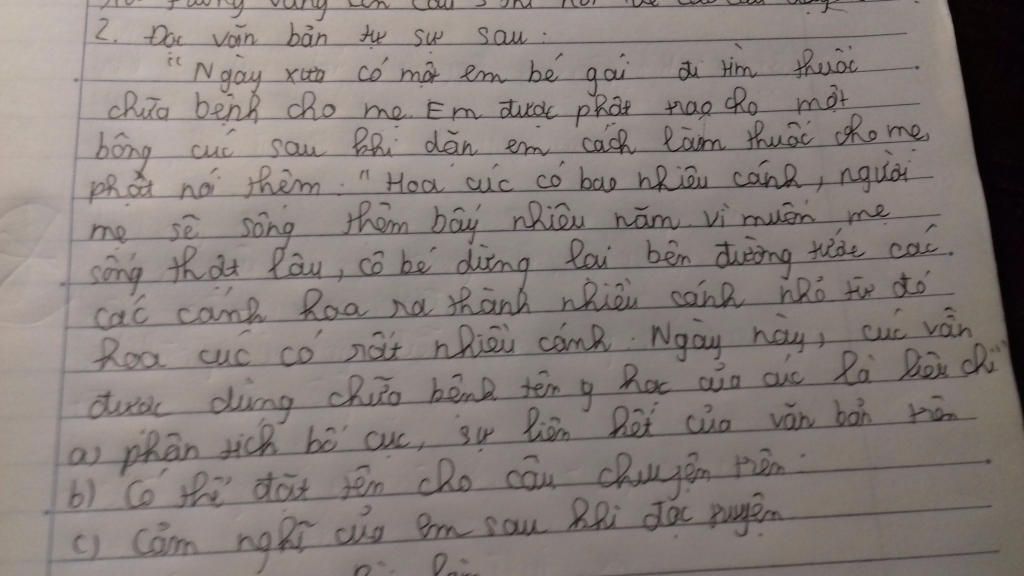 2. Đọc văn bản tự sự sau:
"Ngày xưa có một em bé gái đi tìm thuốc
chữa bệnh cho mẹ. Em được phật trao cho một
bông cúc sau khi dặn em cách làm thuốc cho mẹ,
phật nói thêm: "Hoa cúc có bao nhiêu cánh, người
mẹ sẽ sống thêm bấy nhiêu năm. vì muốn mẹ
sống thật lâu, cô bé dừng lại bên đường tước các
các cánh hoa ra thành nhiều cánh nhỏ từ đó
hoa cúc có rất nhiều cánh. Ngày nay, cúc vẫn
được dùng chữa bệnh tên y học của cúc là liêu chi"
a) phân tích bố cục, sự liên kết của văn bản trên
b) Có thể đặt tên cho câu chuyện trên.
c) Cảm nghĩ của em sau khi đọc truyện